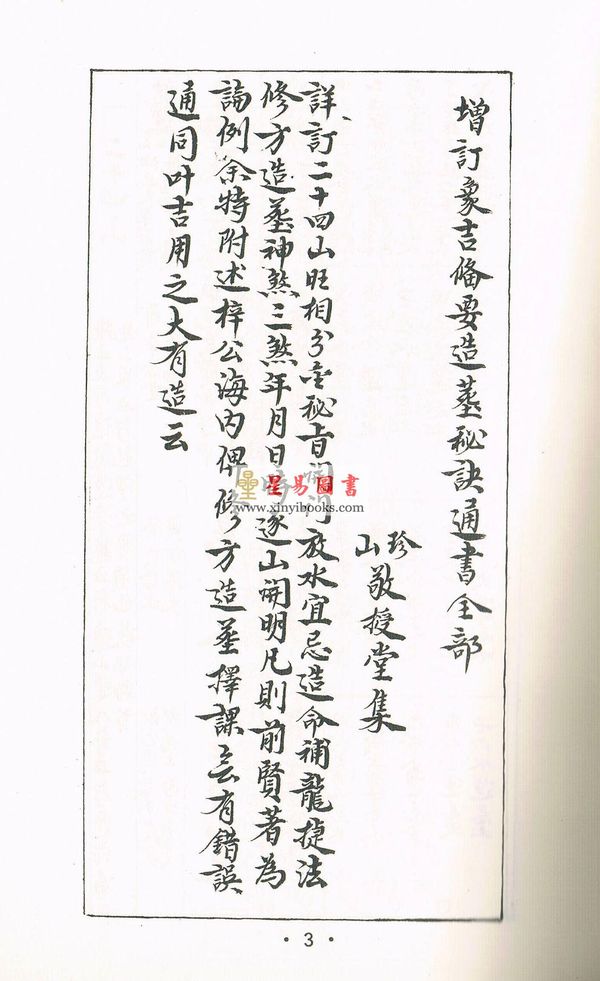 增訂象吉偹要造墓秘訣通書全部
珍山敬授堂集
詳訂二十四山旺相分金秘旨開門放水宜忌造命補龍捷法
修方造墓神煞三煞年月日逐山開明凡則前賢著為
論例余特附述梓公海内俾修方造墓擇課無有錯誤
通同叶吉用之大有造云
星易圖書
www.xinyibooks.com
· 3 ·